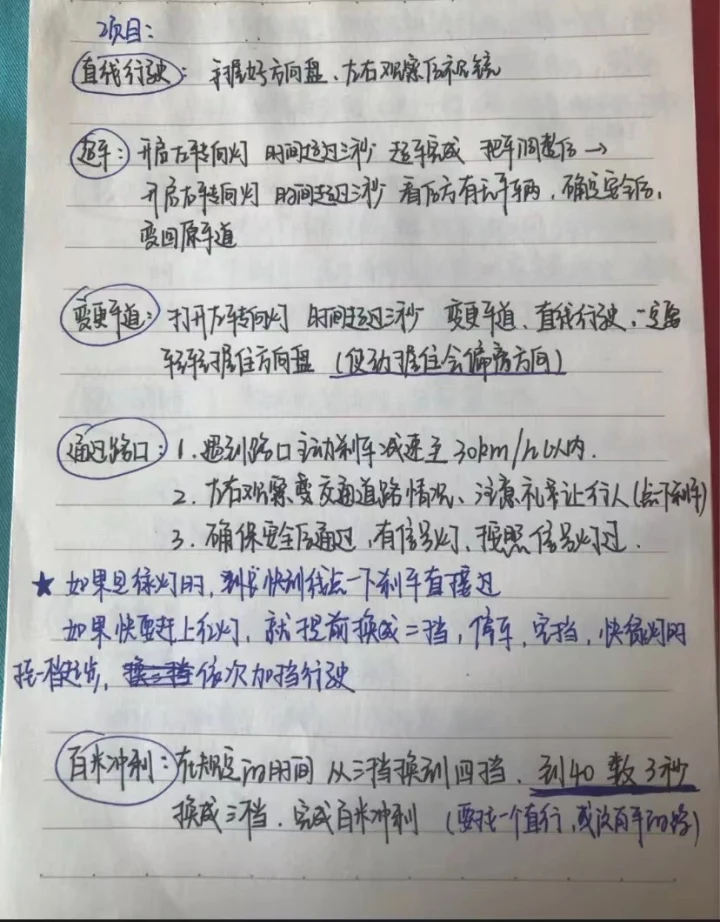 项目:
直线行驶: 手握好方向盘、左右观察后视镜
超车: 开启左转向灯 时间超过三秒 超车完成 把车调整后→
开启右转向灯 时间超过三秒 看后方有无车辆,确定安全后,
变回原车道
变更车道: 打开左转向灯 时间超过三秒 变更车道、直线行驶,一定要
轻轻握住方向盘 (使劲握住会偏离方向)
通过路口: 1. 遇到路口主动刹车减速至30km/h以内.
2. 左右观察交通道路情况、注意礼貌让行人(点下刹车)
3. 确保安全后通过,有信号灯,按照信号灯过.
★ 如果是绿灯时,快到线点一下刹车直接过
如果快要赶上红灯,就提前换成二挡,停车,空挡,快绿灯时
挂一档起步,依次加挡行驶
百米冲刺: 在规定的时间 从三挡换到四挡、到40 数3秒
换成三档.完成百米冲刺 (要找一个直行,或没有车的路)